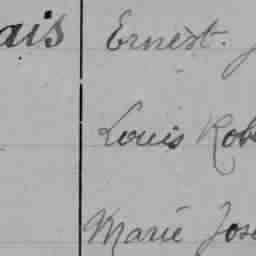 ais Ernest. J
Louis Robe
Marie Jose